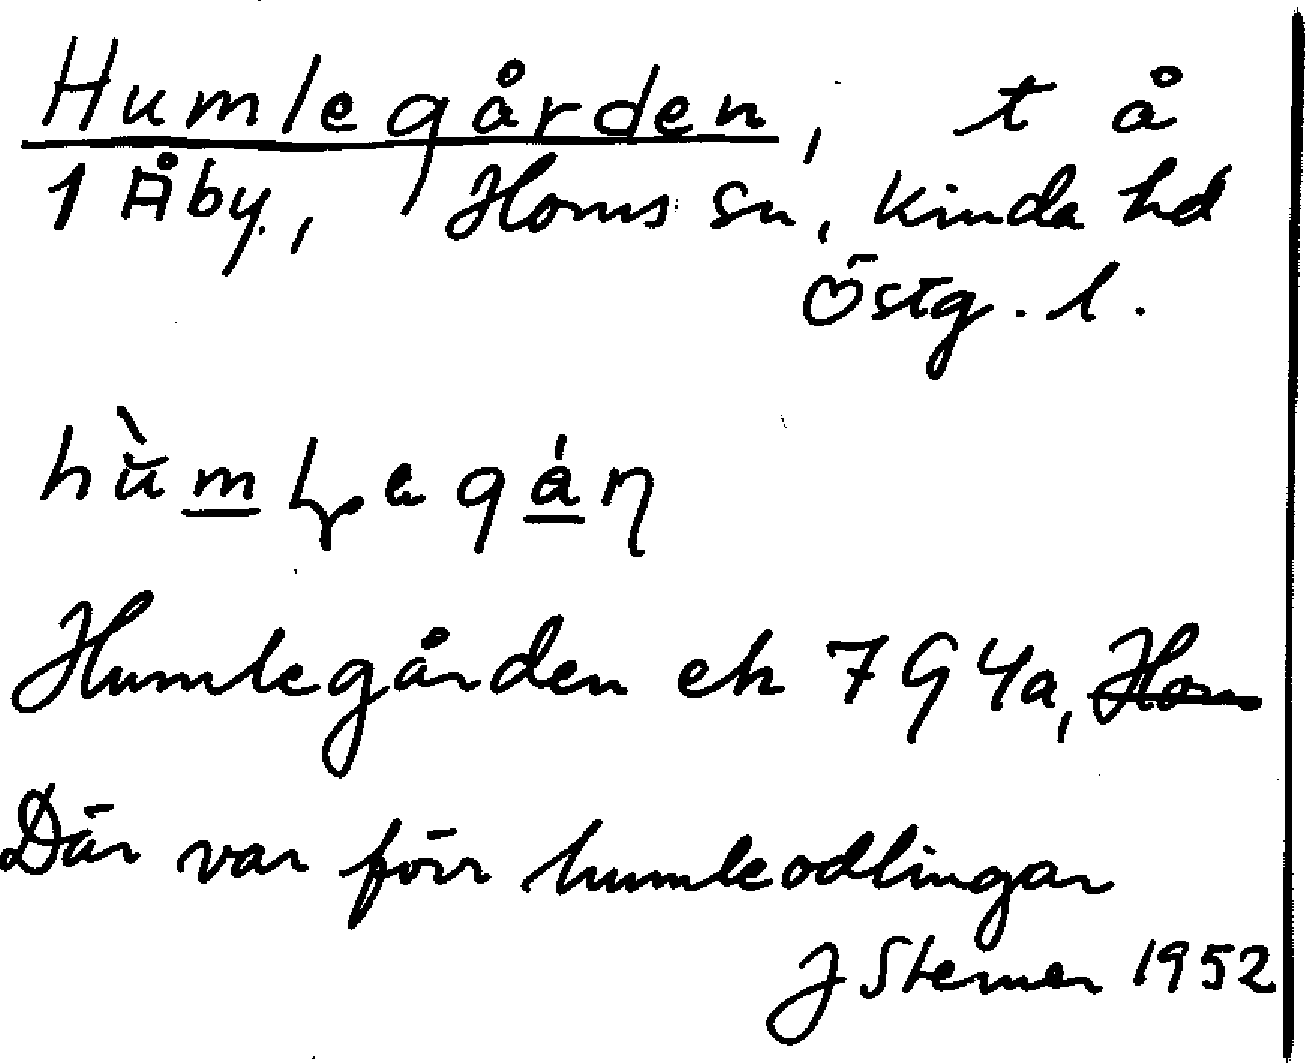 Humlegården, t å
1 Åby, Horns sn, Kinda hd
Östg. l.
Humlegården ek 794a, Horn
Där var förr humleodlingar
J Sterner 1952